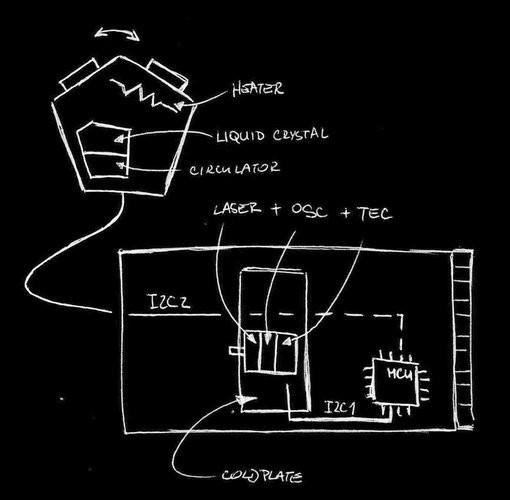 HEATER
LIQUID CRYSTAL
CIRCULATOR
LASER + OSC + TEC
I2C2
MCU
I2C1
COLDPLATE